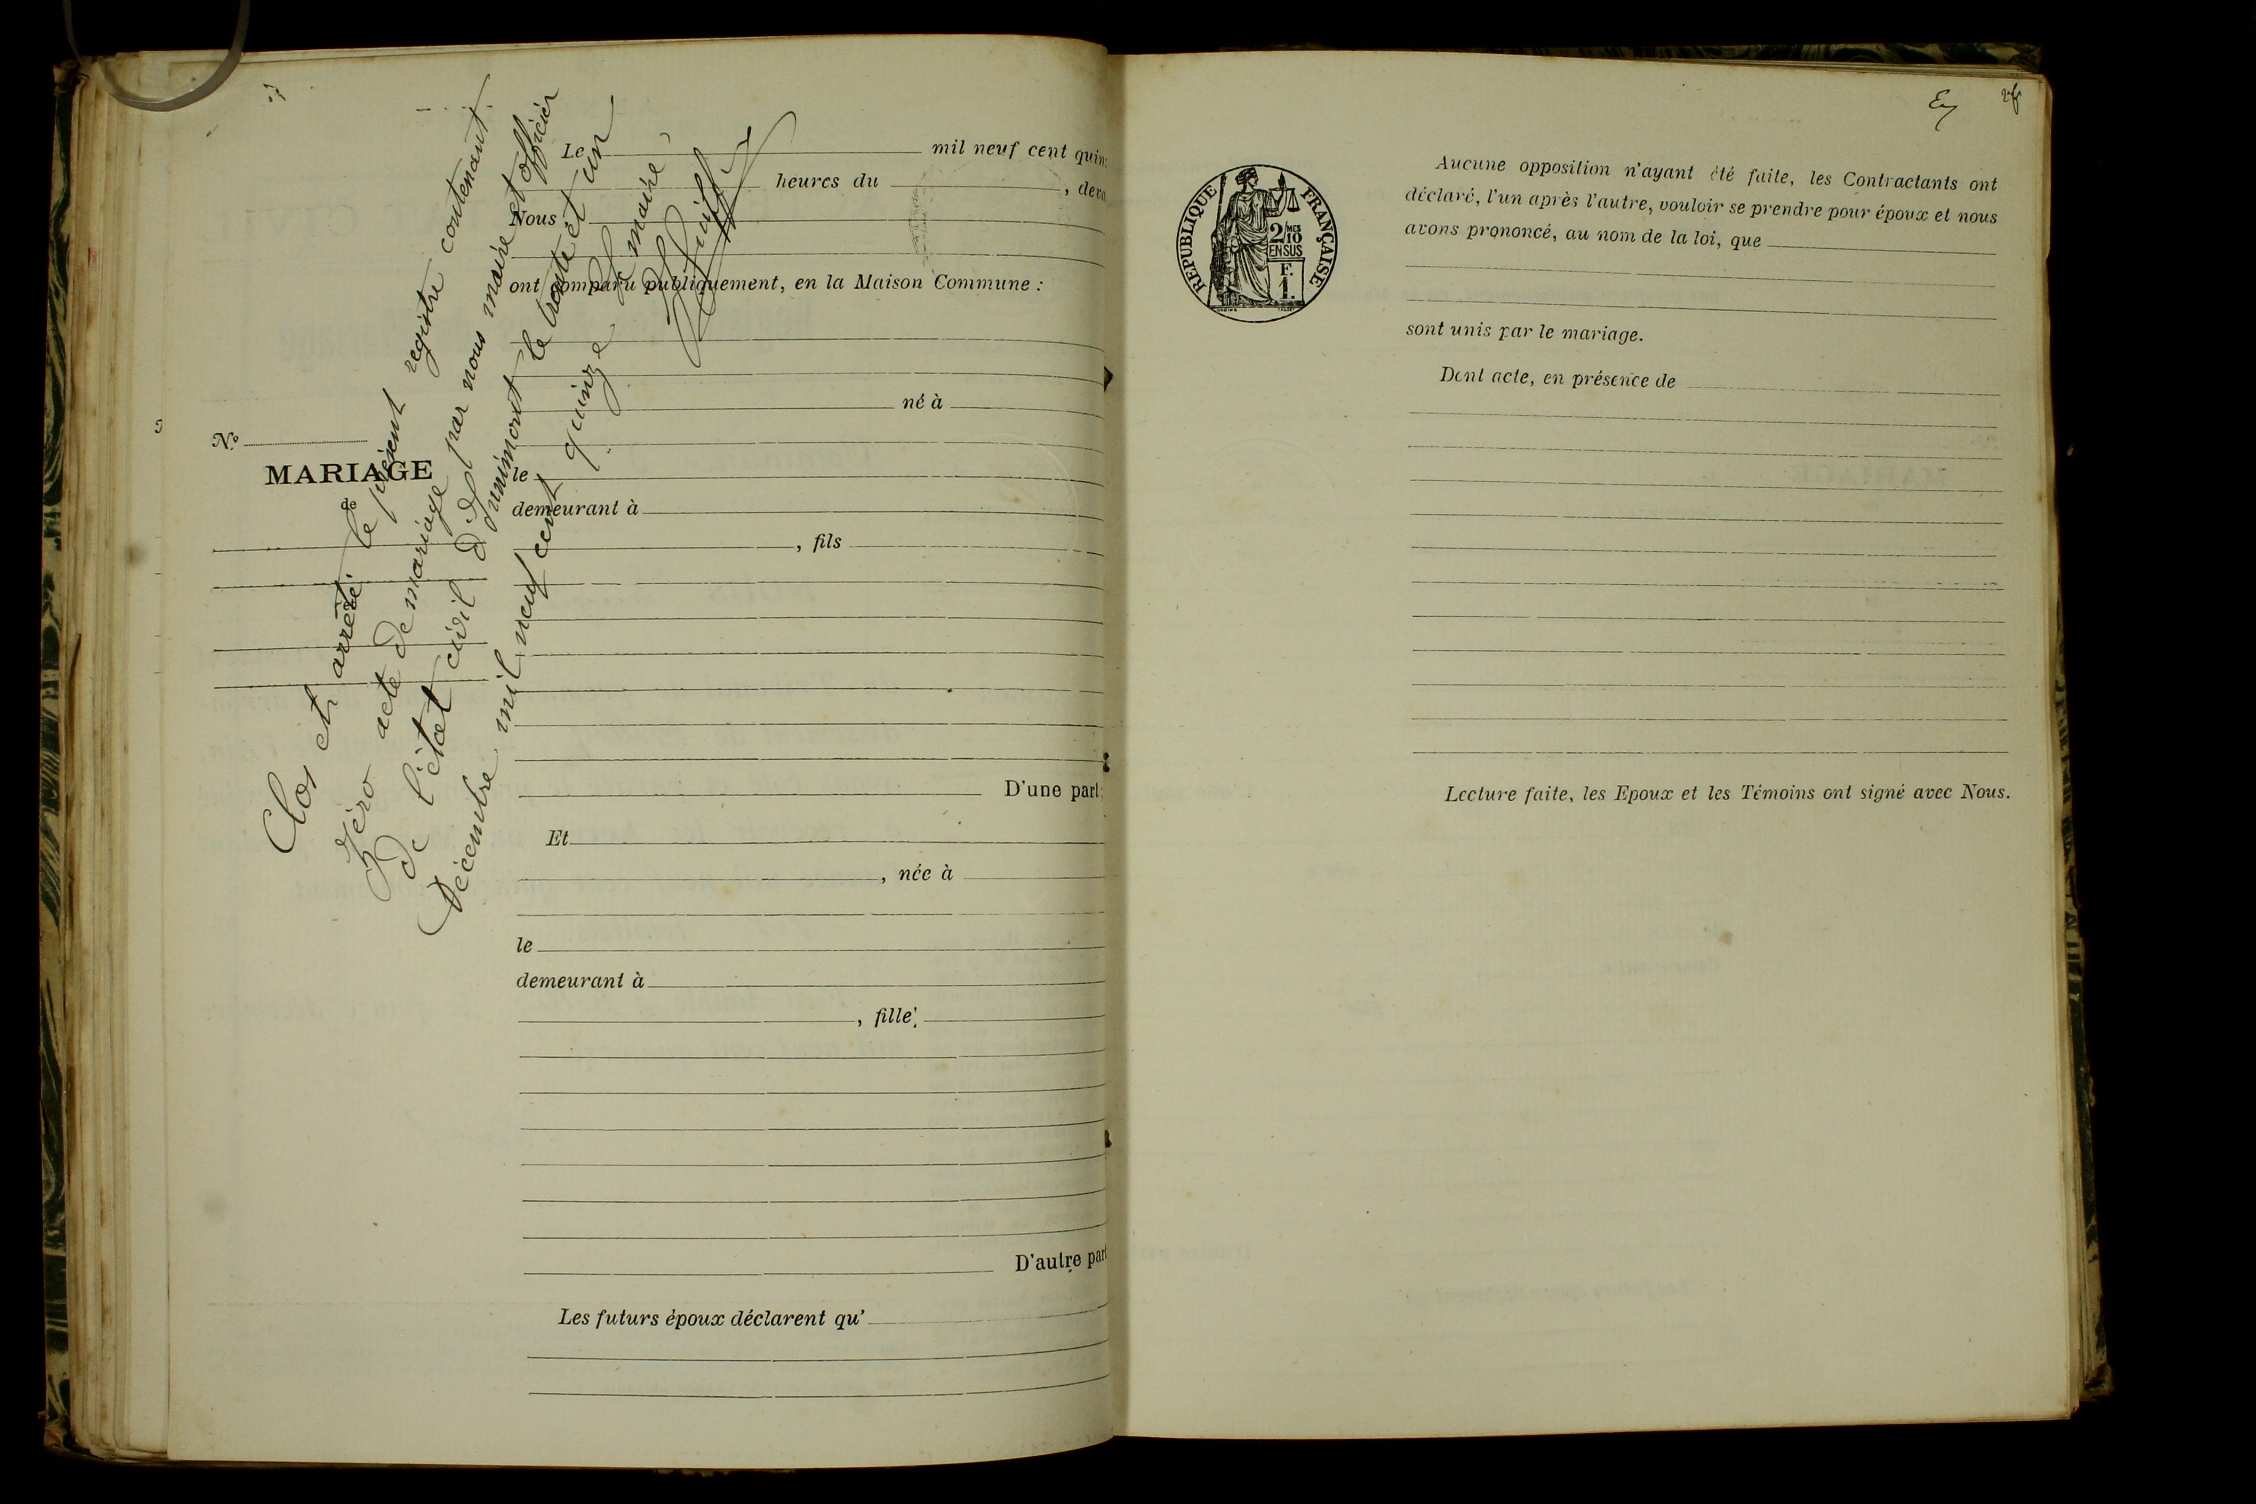 Le mil neuf cent quin
heures du , deva
Nous
ont comparu publiquement, en la Maison Commune :
né à
le
demeurant à
, fils
D'une part
Et
, née à
le
demeurant à
, fille
D'autre part
Les futurs époux déclarent qu'
N°
MARIAGE
de
Clos et arrêté le présent registre contenant
zéro acte de mariage par nous maire et officier
de l'état civil le trente et un
Décembre mil neuf cent quinze
Le maire
RÉPUBLIQUE FRANÇAISE
2 MES 10
EN SUS
F.
1.
Aucune opposition n'ayant été faite, les Contractants ont
déclaré, l'un après l'autre, vouloir se prendre pour époux et nous
avons prononcé, au nom de la loi, que
sont unis par le mariage.
Dont acte, en présence de
Lecture faite, les Epoux et les Témoins ont signé avec Nous.